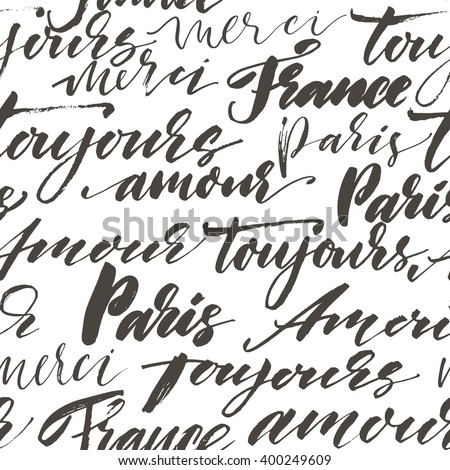 France
toujours merci tou
merci France
toujours Paris t
amour Paris
s
Amour toujours A
r Paris Amour
merci toujours
r France amour
shutterstock
IMAGE ID: 400249609
www.shutterstock.com